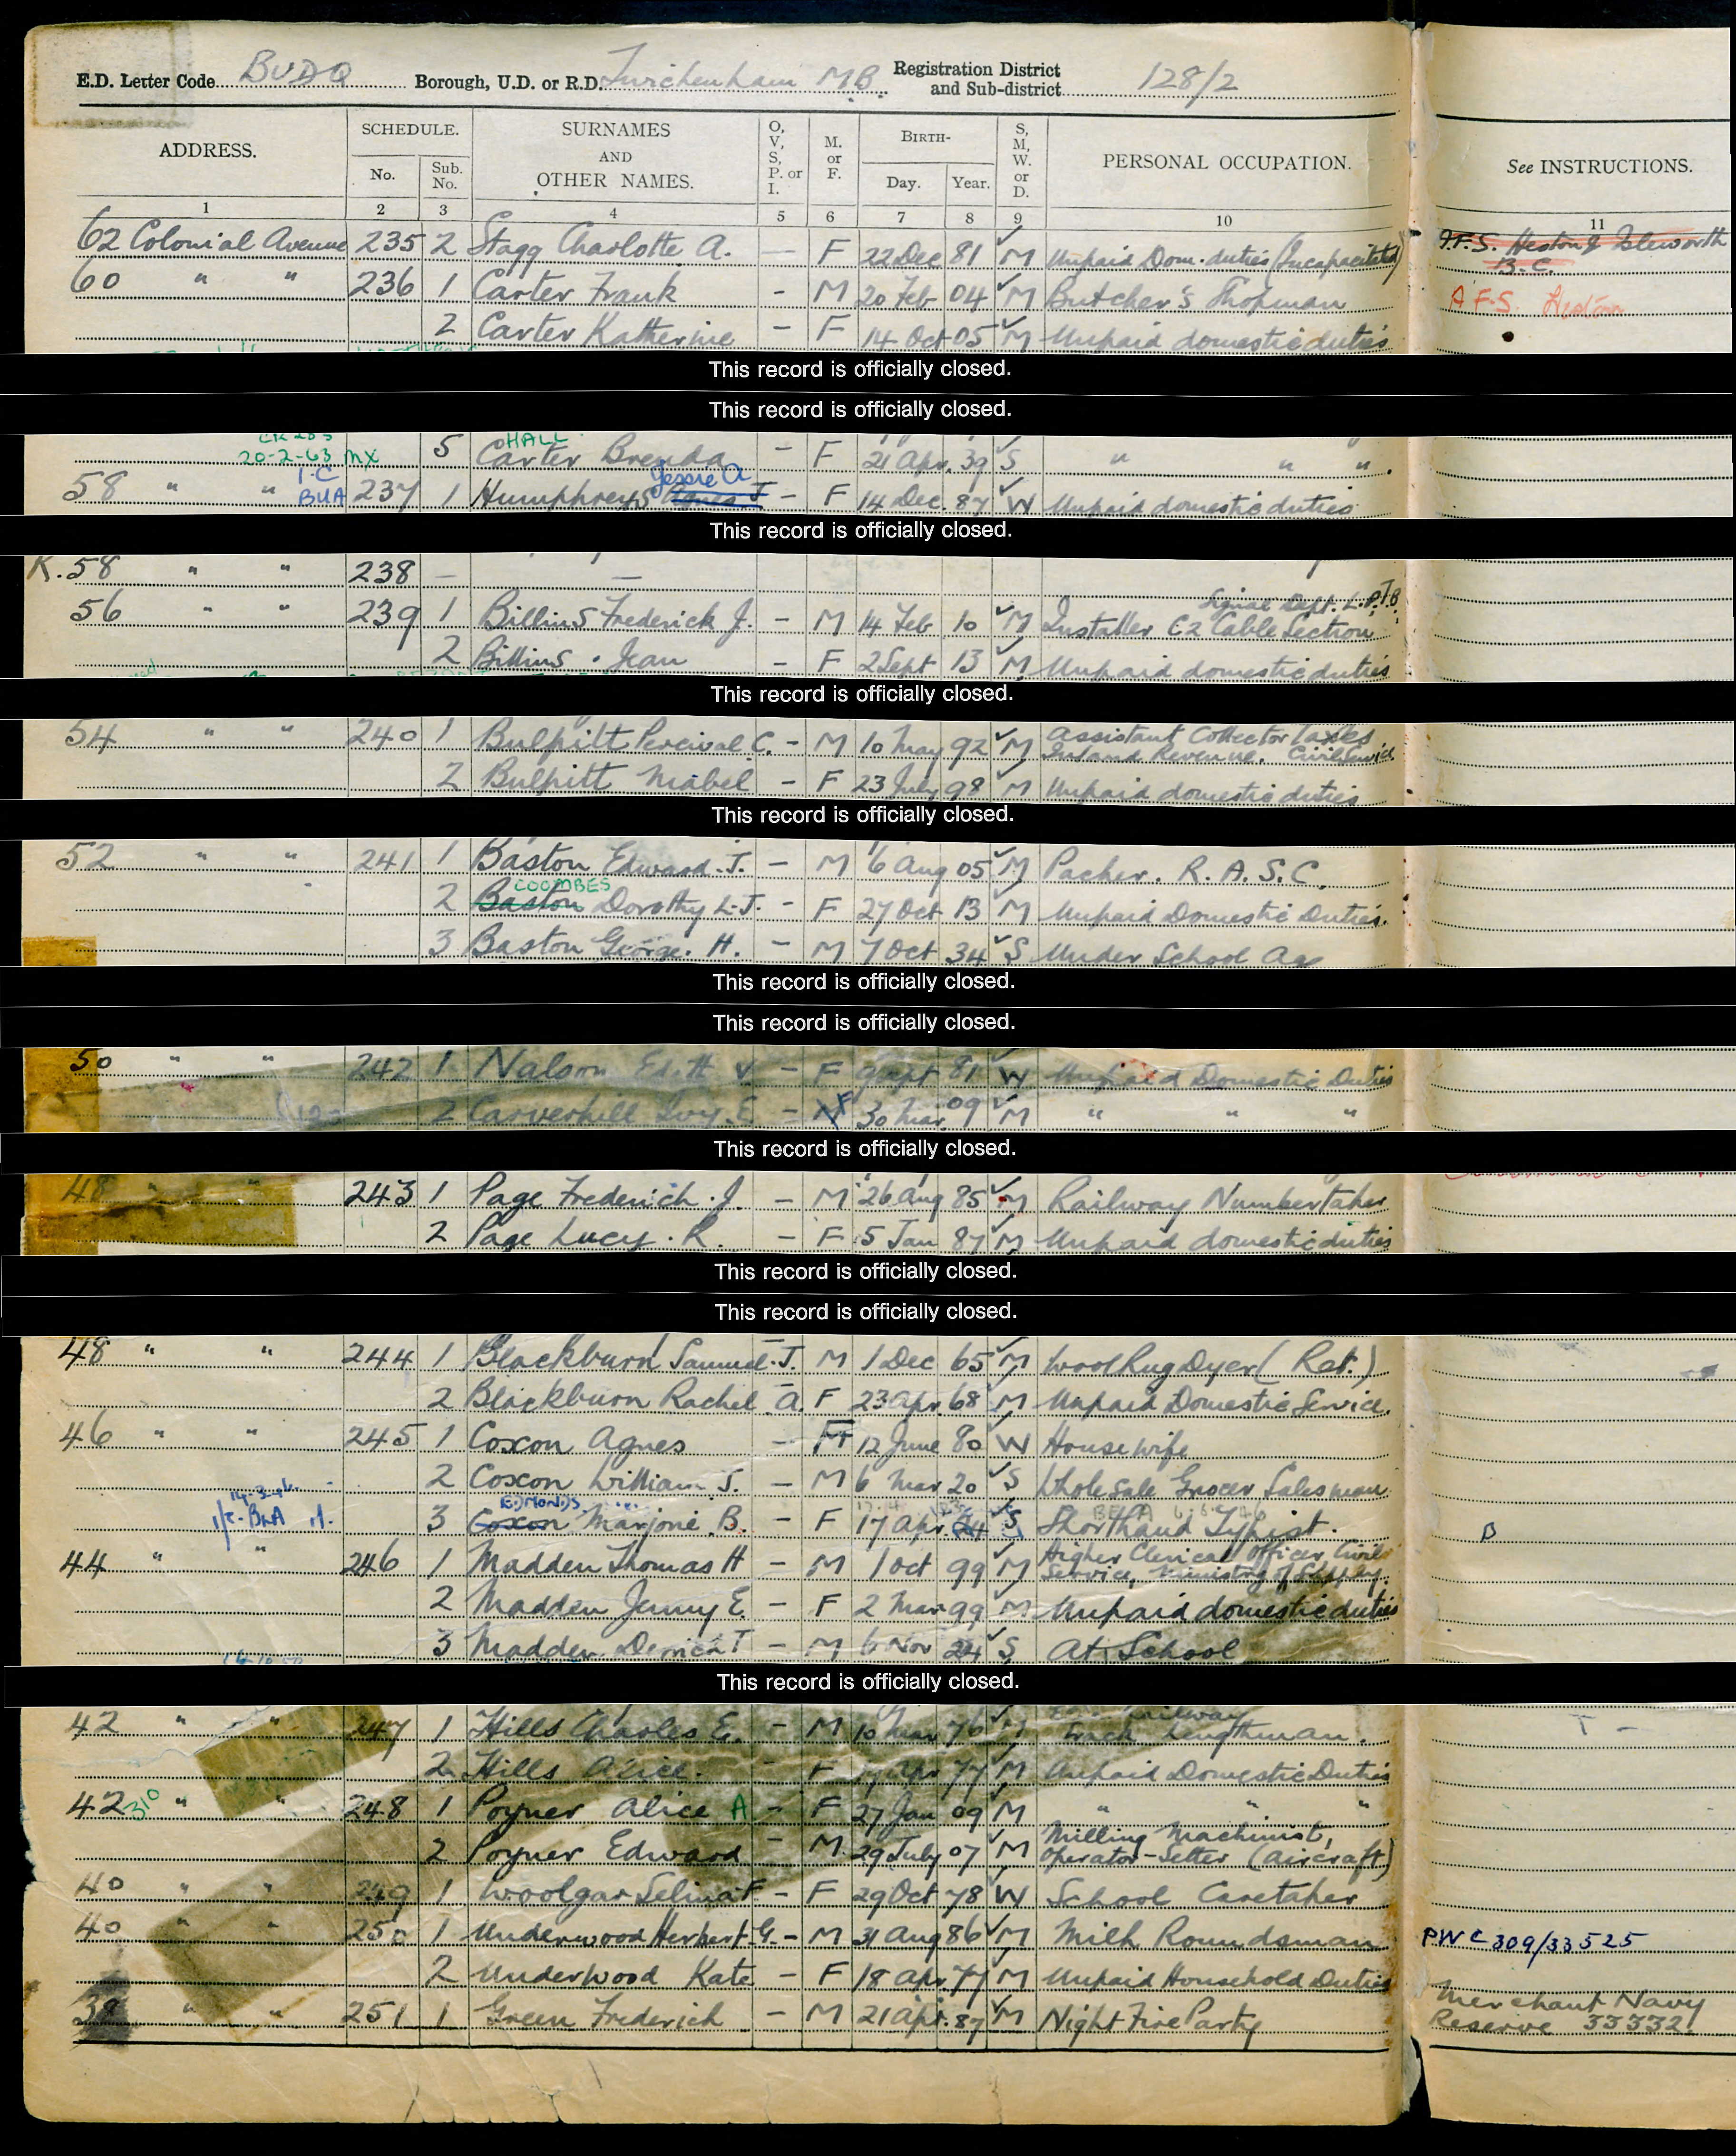 E.D. Letter Code BUDQ Borough, U.D. or R.D. Twickenham M.B. Registration District and Sub-district 128/2
ADDRESS. SCHEDULE. No. Sub. No. SURNAMES AND OTHER NAMES. O, V, S, P. or I. M. or F. BIRTH- Day. Year. S, M, W. or D. PERSONAL OCCUPATION. See INSTRUCTIONS.
1 2 3 4 5 6 7 8 9 10 11
62 Colonial Avenue 235 2 Stagg Charlotte A. — F 22 Dec 81 M Unpaid Dom. duties (Incapacitated) A.F.S. Heston & Isleworth B.C.
60 " " 236 1 Carter Frank - M 20 Feb 04 M Butcher's Shopman A.F.S. Heston
2 Carter Katherine - F 14 Oct 05 M Unpaid domestic duties
This record is officially closed.
This record is officially closed.
20-2-63 MX HALL
5 Carter Brenda - F 21 Apr. 39 S " " "
1-C BUA Jessie A
58 " " 237 1 Humphreys Agnes J - F 14 Dec. 87 W Unpaid domestic duties
This record is officially closed.
K. 58 " " 238 — —
Signal Dept. L.P.T.B.
56 " " 239 1 Billins Frederick J. - M 14 Feb 10 M Installer C2 Cable Section
2 Billins . Jean - F 2 Sept 13 M Unpaid domestic duties
This record is officially closed.
54 " " 240 1 Bulpitt Percival C. - M 10 May 92 M Assistant Collector Taxes Inland Revenue. Civil Service
2 Bulpitt Mabel - F 23 July 98 M Unpaid domestic duties
This record is officially closed.
52 " " 241 1 Baston Edward. J. - M 6 Aug 05 M Packer. R. A. S. C.
COOMBES
2 Baston Dorothy L.J. - F 27 Oct 13 M Unpaid Domestic Duties.
3 Baston George. H. - M 7 Oct 34 S Under School Age
This record is officially closed.
This record is officially closed.
50 " " 242 1 Nalson Edith - F Sept 81 W Unpaid Domestic Duties
2 Carverhill Ivy. E - F 30 Mar 09 M " " "
This record is officially closed.
48 " " 243 1 Page Frederick. J. - M 26 Aug 85 M Railway Numbertaker
2 Page Lucy. R. - F 5 Jan 87 M Unpaid domestic duties
This record is officially closed.
This record is officially closed.
48 " " 244 1 Blackburn Samuel. J. — M 1 Dec 65 M Wool Rug Dyer (Ret.)
2 Blackburn Rachel A. — F 23 Apr. 68 M Unpaid Domestic Service.
46 " " 245 1 Coxon Agnes - F 12 June 80 W Housewife
2 Coxon William J. - M 6 Mar 20 S Wholesale Grocer Salesman
EDMONDS
3 Coxon Marjorie B. - F 17 Apr 24 S Shorthand Typist. B
44 " " 246 1 Madden Thomas H - M 1 Oct 99 M Higher Clerical Officer, Civil Service, Ministry of Supply
2 Madden Jenny E. - F 2 Mar 99 M Unpaid domestic duties
3 Madden Derrick T - M 6 Nov 24 S At School
This record is officially closed.
42 " " 247 1 Hills Charles E. - M 10 Mar 76 M Railway Track Lengthman.
2 Hills Alice. - F Apr 77 M Unpaid Domestic Duties
42 310 " " 248 1 Poyner Alice A - F 27 Jan 09 M " " "
2 Poyner Edward - M 29 July 07 M Milling Machinist, Operator-Setter (aircraft)
40 " " 249 1 Woolgar Selina F - F 29 Oct 78 W School Caretaker
40 " " 250 1 Underwood Herbert. G. - M 31 Aug 86 M Milk Roundsman PWC 309/33525
2 Underwood Kate - F 18 Apr. 77 M Unpaid Household Duties
38 " " 251 1 Green Frederick - M 21 Apr. 87 M Night Fire Party Merchant Navy Reserve 33332.